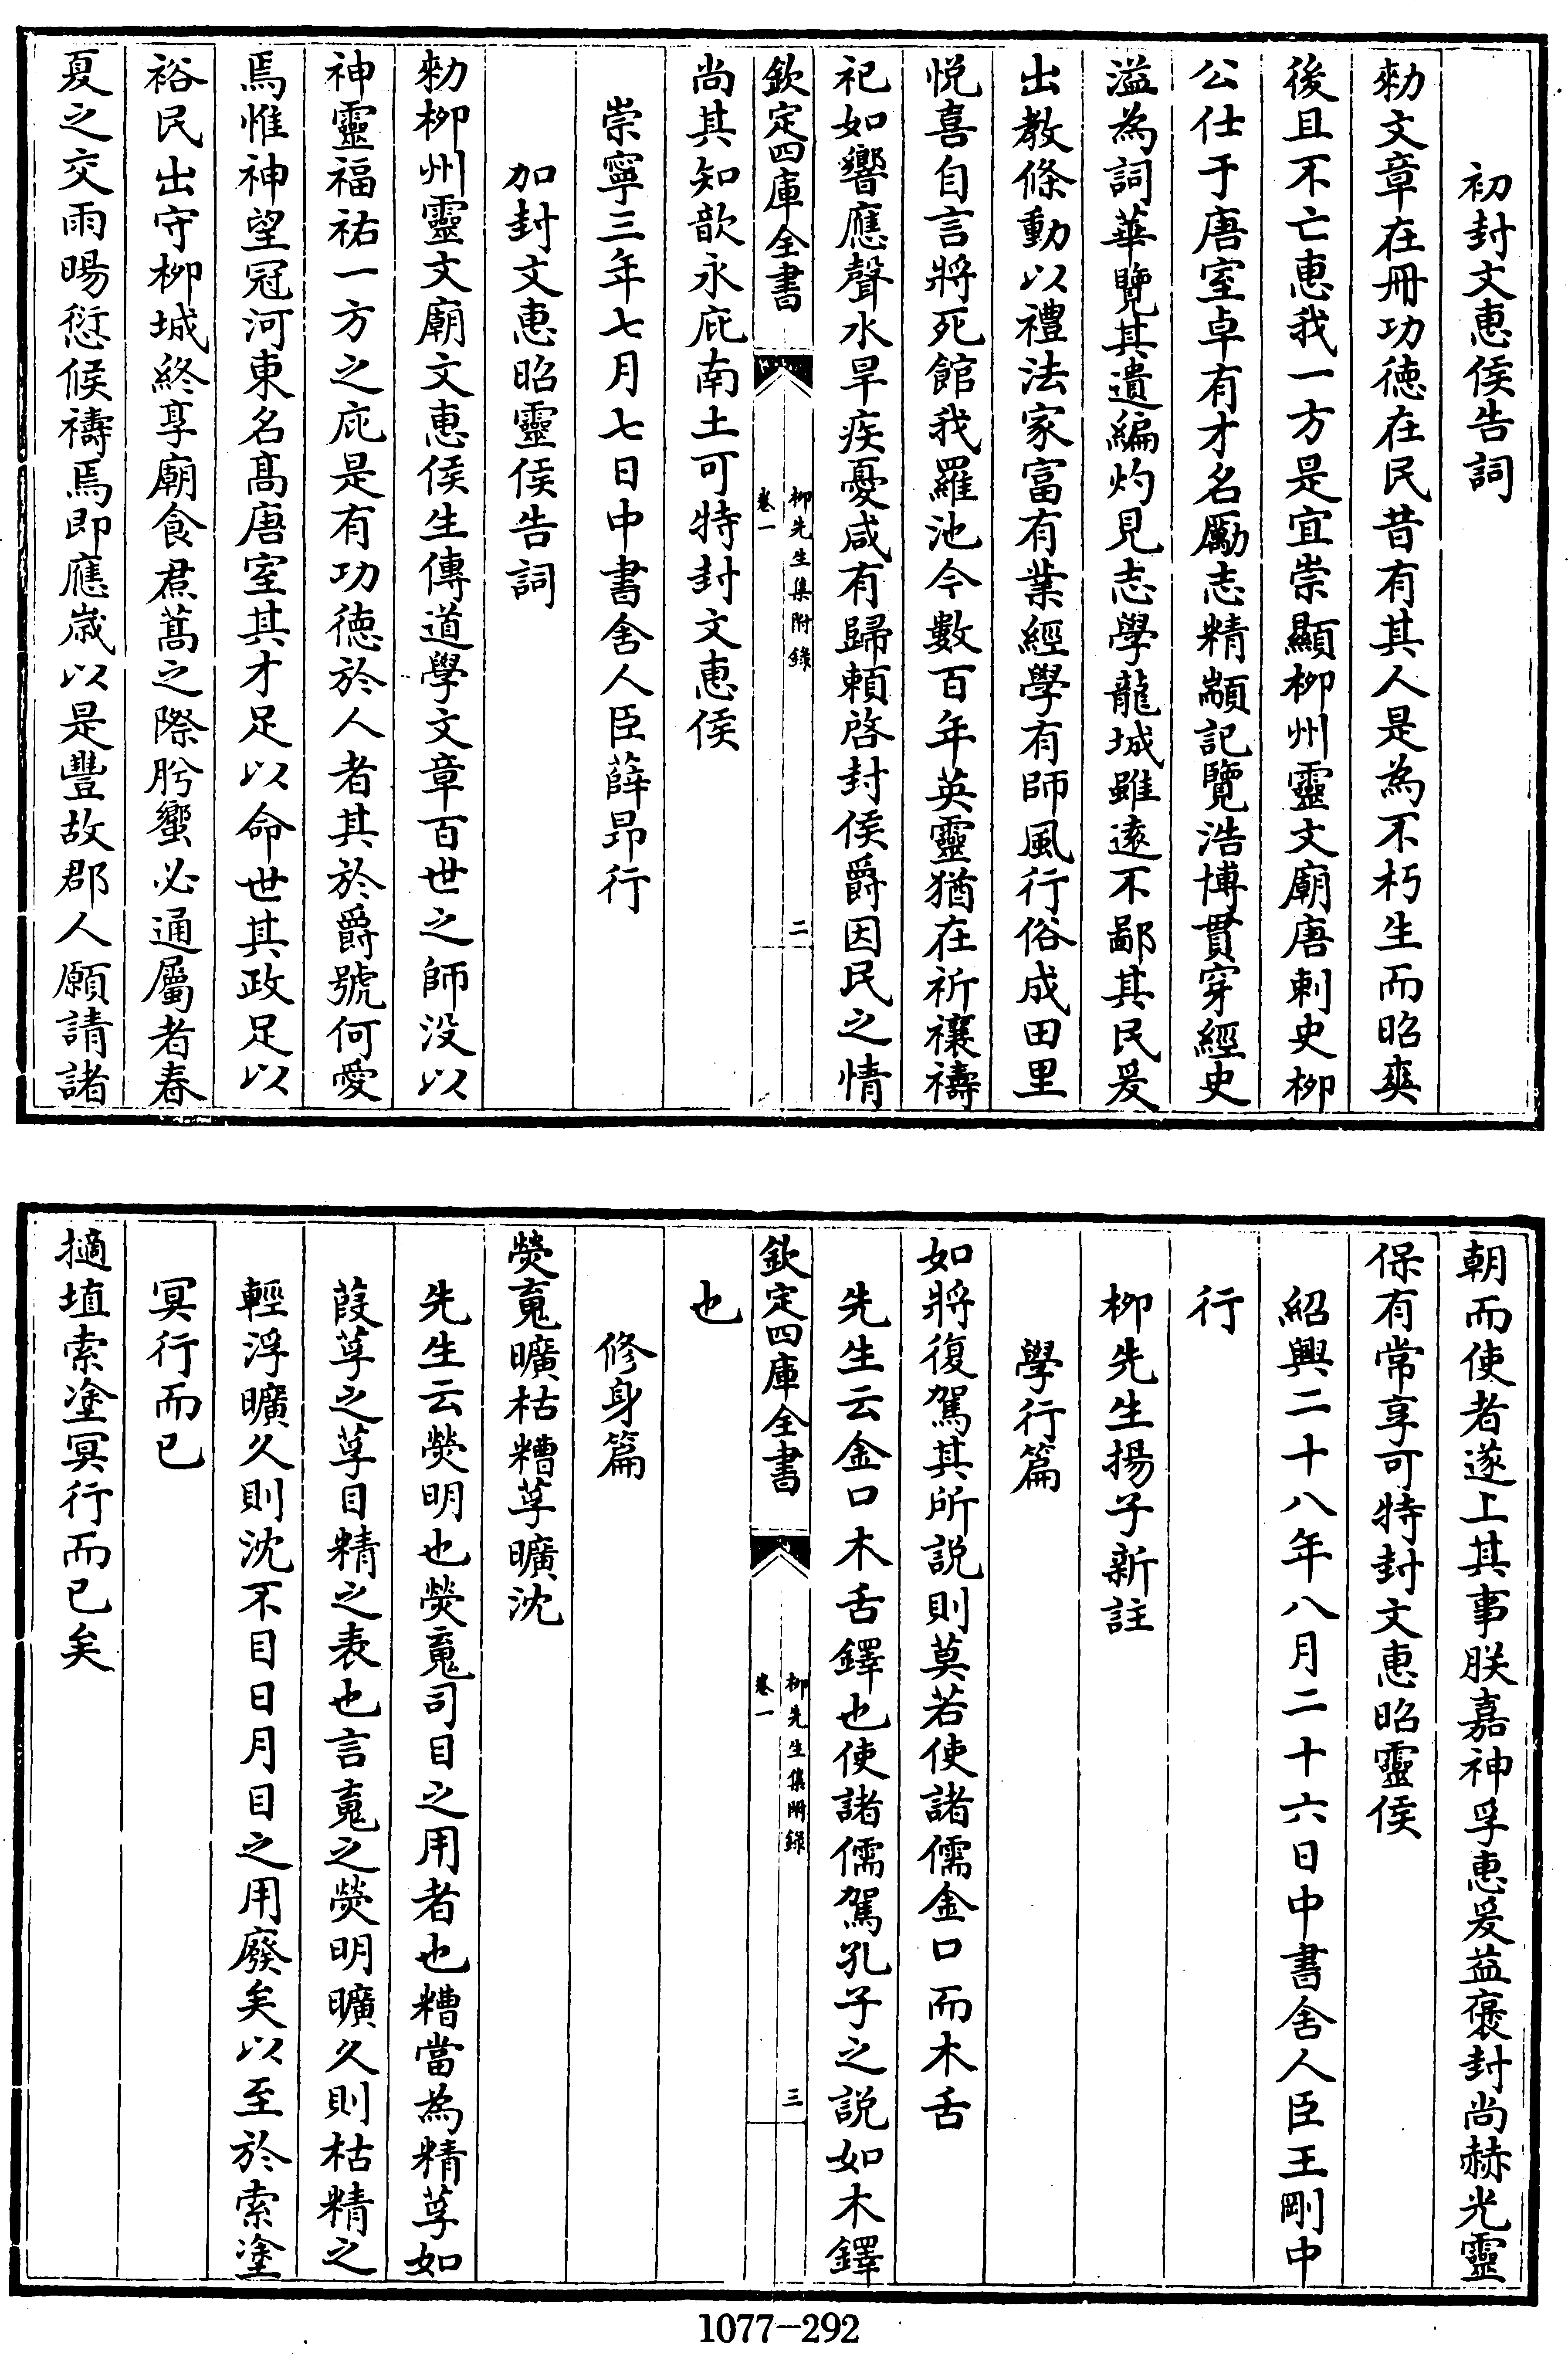 初封文惠侯告詞
勑文章在冊功徳在民昔有其人是為不朽生而昭爽
後且不亡惠我一方是宜崇顯柳州靈文廟唐刺史柳
公仕于唐室卓有才名勵志精顓記覽浩博貫穿經史
溢為詞華覽其遺編灼見志學龍城雖逺不鄙其民爰
出教條動以禮法家富有業經學有師風行俗成田里
悦喜自言將死館我羅池今數百年英靈猶在祈禳禱
祀如響應聲水旱疾憂咸有歸頼啓封侯爵因民之情
欽定四庫全書
柳先生集附錄
卷一
二
尚其知歆永庇南土可特封文惠侯
崇寧三年七月七日中書舍人臣薛昂行
加封文惠昭靈侯告詞
勑柳州靈文廟文惠侯生傳道學文章百世之師没以
神靈福祐一方之庇是有功徳於人者其於爵號何愛
焉惟神望冠河東名髙唐室其才足以命世其政足以
裕民出守柳城終享廟食焄蒿之際肸蠁必通屬者春
夏之交雨暘愆候禱焉即應嵗以是豐故郡人願請諸
朝而使者遂上其事朕嘉神孚惠爰益褒封尚赫光靈
保有常享可特封文惠昭靈侯
紹興二十八年八月二十六日中書舍人臣王剛中
行
柳先生揚子新註
學行篇
如將復駕其所説則莫若使諸儒金口而木舌
先生云金口木舌鐸也使諸儒駕孔子之説如木鐸
欽定四庫全書
柳先生集附錄
卷一
三
也
修身篇
熒䰟曠枯糟莩曠沈
先生云熒明也熒䰟司目之用者也糟當為精莩如
葭莩之莩目精之表也言䰟之熒明曠久則枯精之
輕浮曠久則沈不目日月目之用廢矣以至於索塗
冥行而已
擿埴索塗冥行而已矣
1077-292